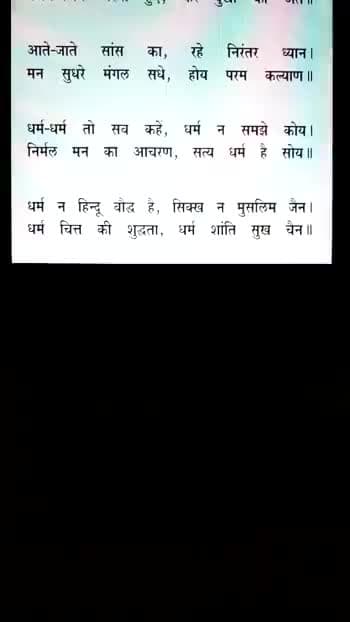 आते-जाते सांस का, रहे निरंतर ध्यान।
मन सुधरे मंगल सधे, होय परम कल्याण॥
धर्म-धर्म तो सब कहें, धर्म न समझे कोय।
निर्मल मन का आचरण, सत्य धर्म है सोय॥
धर्म न हिन्दू बौद्ध है, सिक्ख न मुसलिम जैन।
धर्म चित्त की शुद्धता, धर्म शांति सुख चैन॥